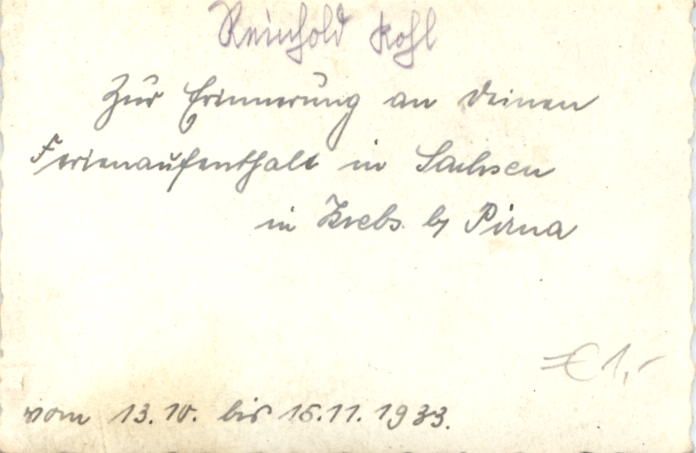 Reinhold Kohl
Zur Erinnerung an Deinen
Ferienaufenthalt in Sachsen
in Krebs b/ Pirna
€ 1,-
vom 13.10. bis 15.11.1933.